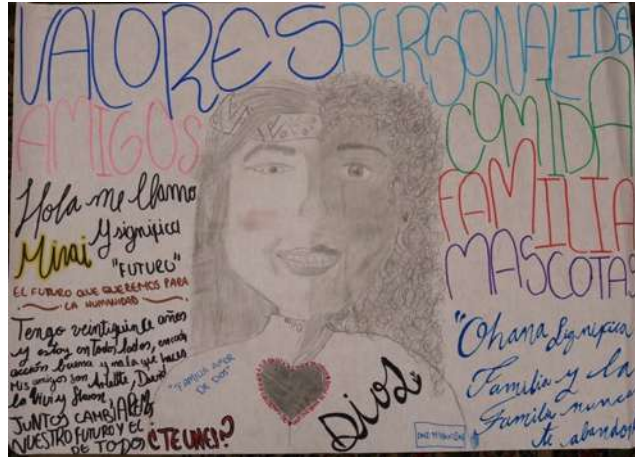 VALORES
PERSONALIDAD
AMIGOS
COMIDA
FAMILIA
MASCOTAS
Hola me llamo
Mirai y significa
"FUTURO"
EL FUTURO QUE QUEREMOS PARA
LA HUMANIDAD
Tengo años
y estoy en todos lados, en cada
acción buena y mala que haces
Mis amigos son David
JUNTOS CAMBIAREMOS
NUESTRO FUTURO Y EL
DE TODOS ¿TE UNES?
"FAMILIA AMOR
DE DOS"
DIOS
"Ohana significa
Familia y la
Familia nunca
te abandona